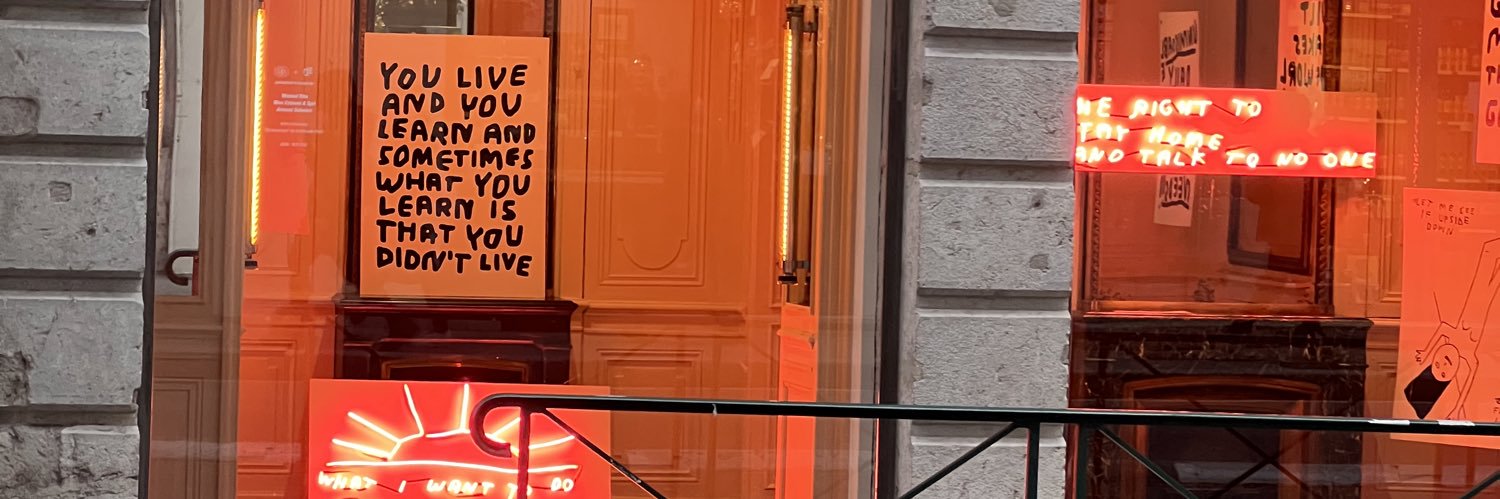 YOU LIVE
AND YOU
LEARN AND
SOMETIMES
WHAT YOU
LEARN IS
THAT YOU
DIDN'T LIVE
WHAT I WANT TO DO
HE RIGHT TO
STAY HOME
AND TALK TO NO ONE
LET ME SEE
IF UPSIDE
DOWN